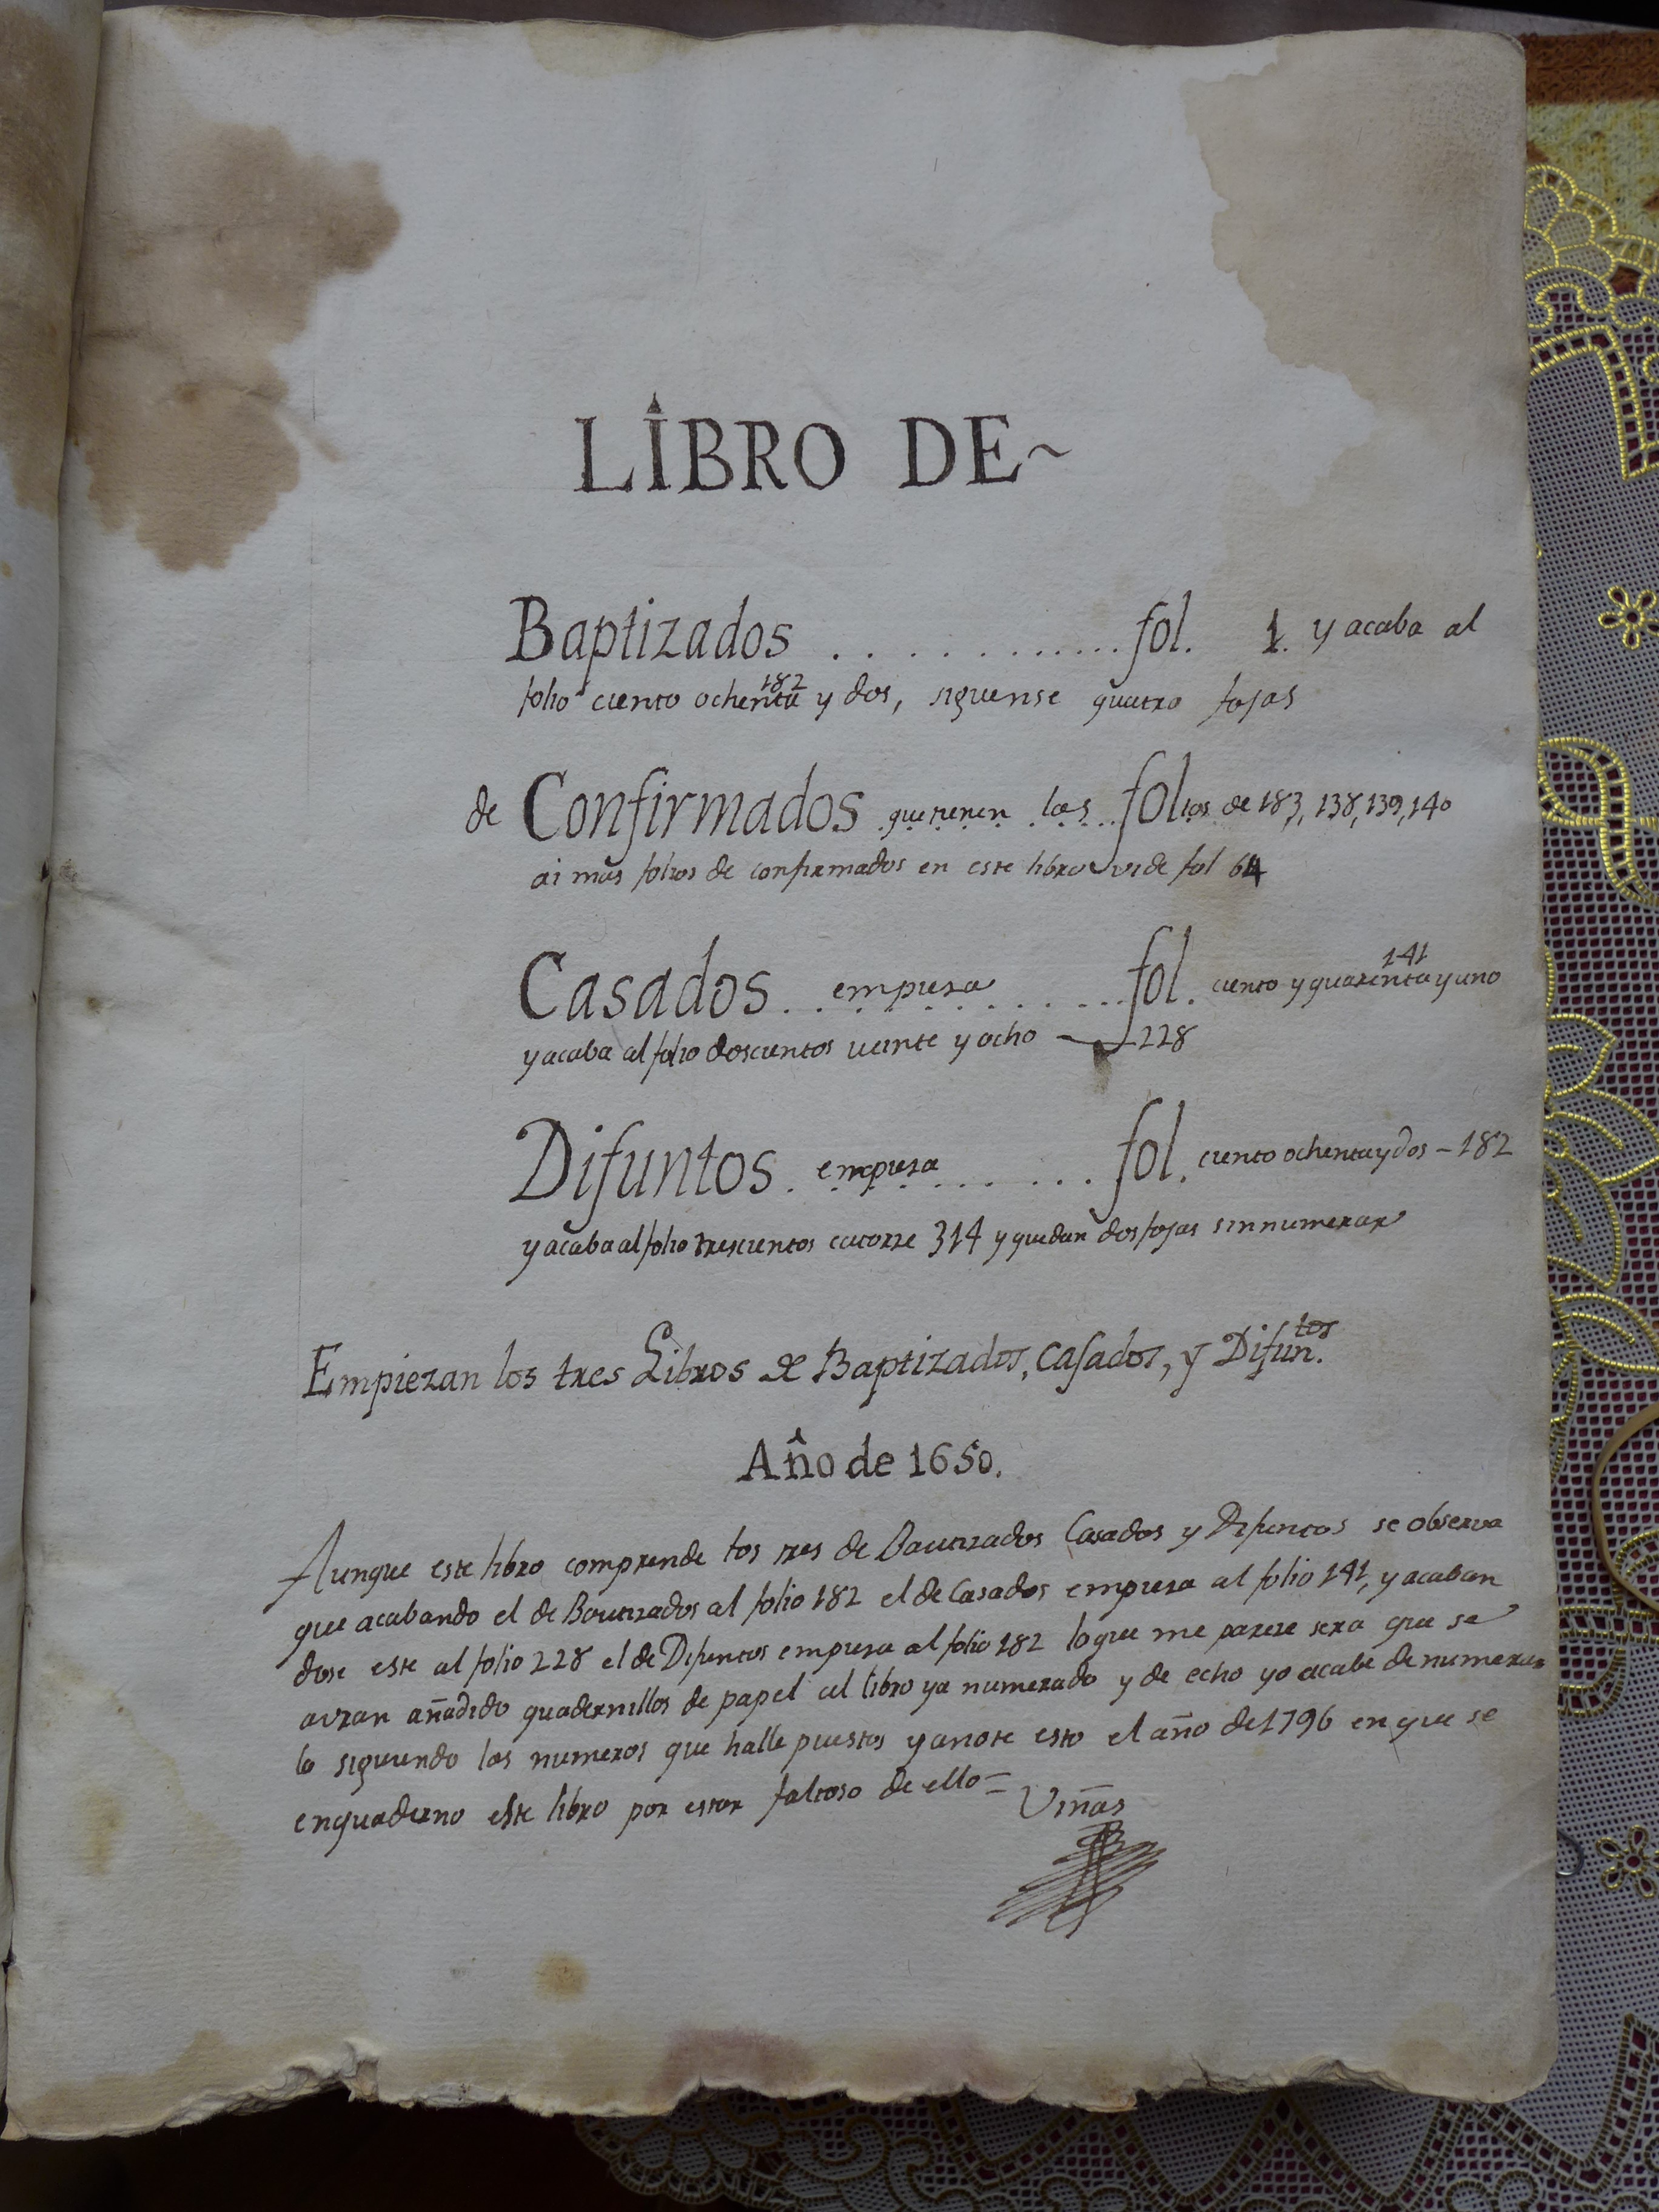 LIBRO DE~
Baptizados ............ fol. 1. y acaba al
folio ciento ochenta 182 y dos, siguense quatro fojas
de Confirmados que tienen los folios de 183, 138, 139, 140
ai mas folios de confirmados en este libro vide fol 64
Casados .. empieza ....... fol. ciento y quarenta y uno 141
y acaba al folio doscientos veinte y ocho — 228
Difuntos . empieza ....... fol. ciento ochenta y dos – 182
y acaba al folio trescientos catorze 314 y quedan dos fojas sin numerar
Empiezan los tres Libros de Baptizados, Casados, y Difun.tos
Año de 1650.
Aunque este libro comprende los tres de Bautizados Casados y Difuntos se observa
que acabando el de Bautizados al folio 182 el de Casados empieza al folio 141, y acaban
dose este al folio 228 el de Difuntos empieza al folio 182 lo que me pareze sera que se
avran añadido quadernillos de papel al libro ya numerado y de echo yo acabe de numerar
lo siguiendo los numeros que halle puestos y anote esto el año de 1796 en que se
enquaderno este libro por estar faltoso de ello = Viñas